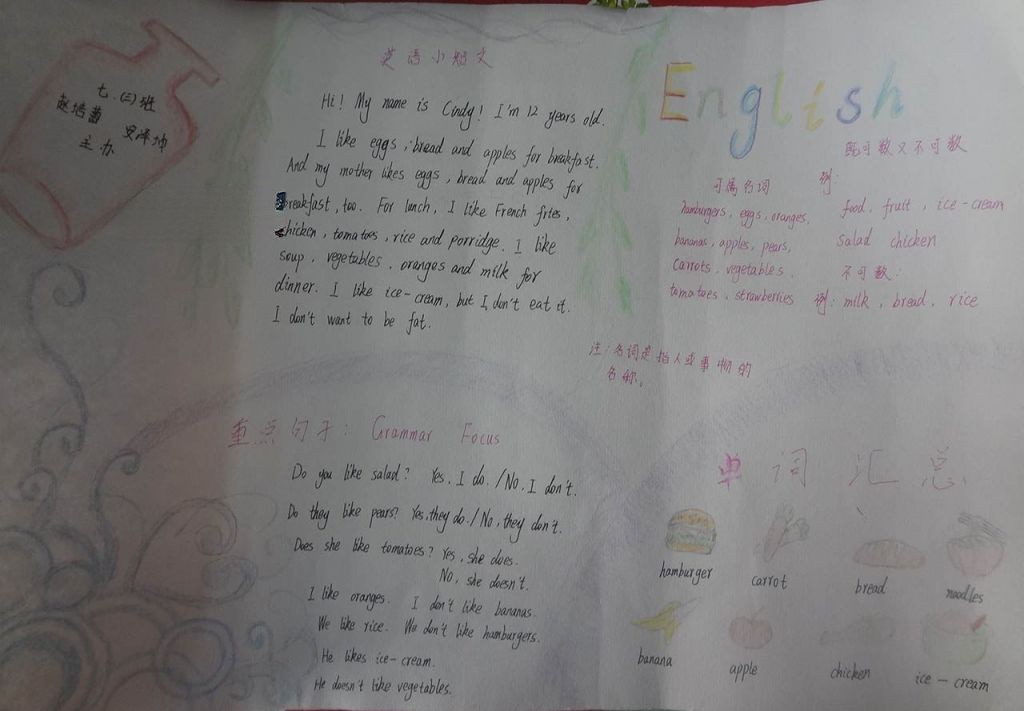 七.(三)班
赵培菡
安泽坤
主办
英语小短文
Hi! My name is Cindy! I'm 12 years old.
I like eggs, bread and apples for breakfast.
And my mother likes eggs, bread and apples for
breakfast, too. For lunch, I like French fries,
chicken, tomatoes, rice and porridge. I like
soup, vegetables, oranges and milk for
dinner. I like ice-cream, but I don't eat it.
I don't want to be fat.
English
可属名词
hamburgers, eggs, oranges,
bananas, apples, pears,
carrots, vegetables.
tomatoes, strawberries
既可数又不可数
例:
food, fruit, ice-cream
salad chicken
不可数:
例: milk, bread, rice
注:名词是指人或事物的
名称。
重点句子: Grammar Focus
Do you like salad? Yes, I do. / No, I don't.
Do they like pears? Yes, they do. / No, they don't.
Does she like tomatoes? Yes, she does.
No, she doesn't.
I like oranges. I don't like bananas.
We like rice. We don't like hamburgers.
He likes ice-cream.
He doesn't like vegetables.
单词汇总
hamburger carrot bread noodles
banana apple chicken ice-cream